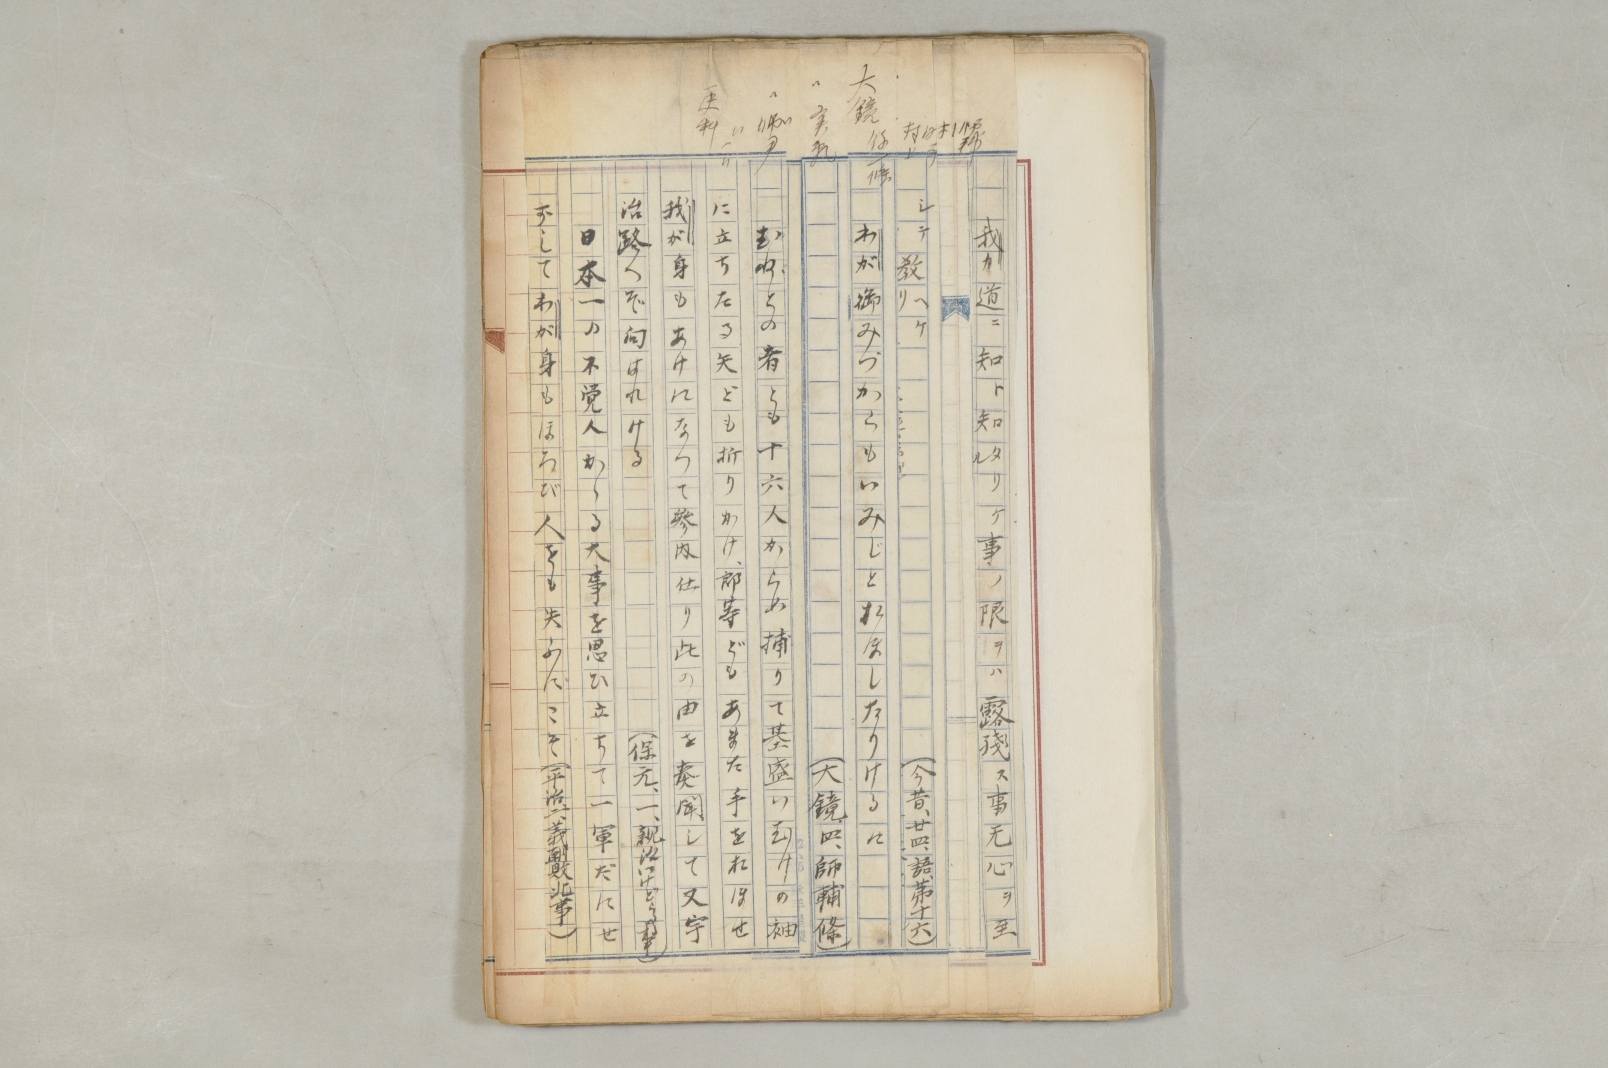 大鏡
更科
我カ道ニ知ト知タリケル事ノ限ヲハ露残ス事无心ヲ至
シテ教ヘケリ
(今昔、廿四、語、第十六)
わが御みづからもいみじとおぼしたりけるに
(大鏡、四、師輔條)
むねとの者ども十六人からめ捕りて基盛いむけの袖
に立ちたる矢ども折りかけ、郎等どもあまた手をおほせ
我が身もあけになつて参内仕り此の由を奏聞して又宇
治路へぞ向はれける
(保元、一、親治いけどらる事)
日本一の不覚人かゝる大事を思ひ立ちて一軍だにせ
ずしてわが身もほろび人をも失ふにこそ(平治、二、義朝敗北事)